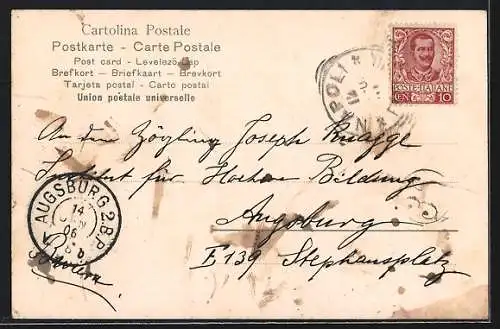 Cartolina Postale
Postkarte - Carte Postale
Post card - Levelező-Lap
Brefkort - Briefkaart - Brevkort
Tarjeta postal - Carto postal
Union postale universelle
POSTE·ITALIANE
CEN 10
NAPOLI
An den Zögling Joseph Knagge
Institut für Höhere Bildung
Augsburg
F 139 Stephansplatz
AUGSBURG 2.B.P.
14
06
Baviera